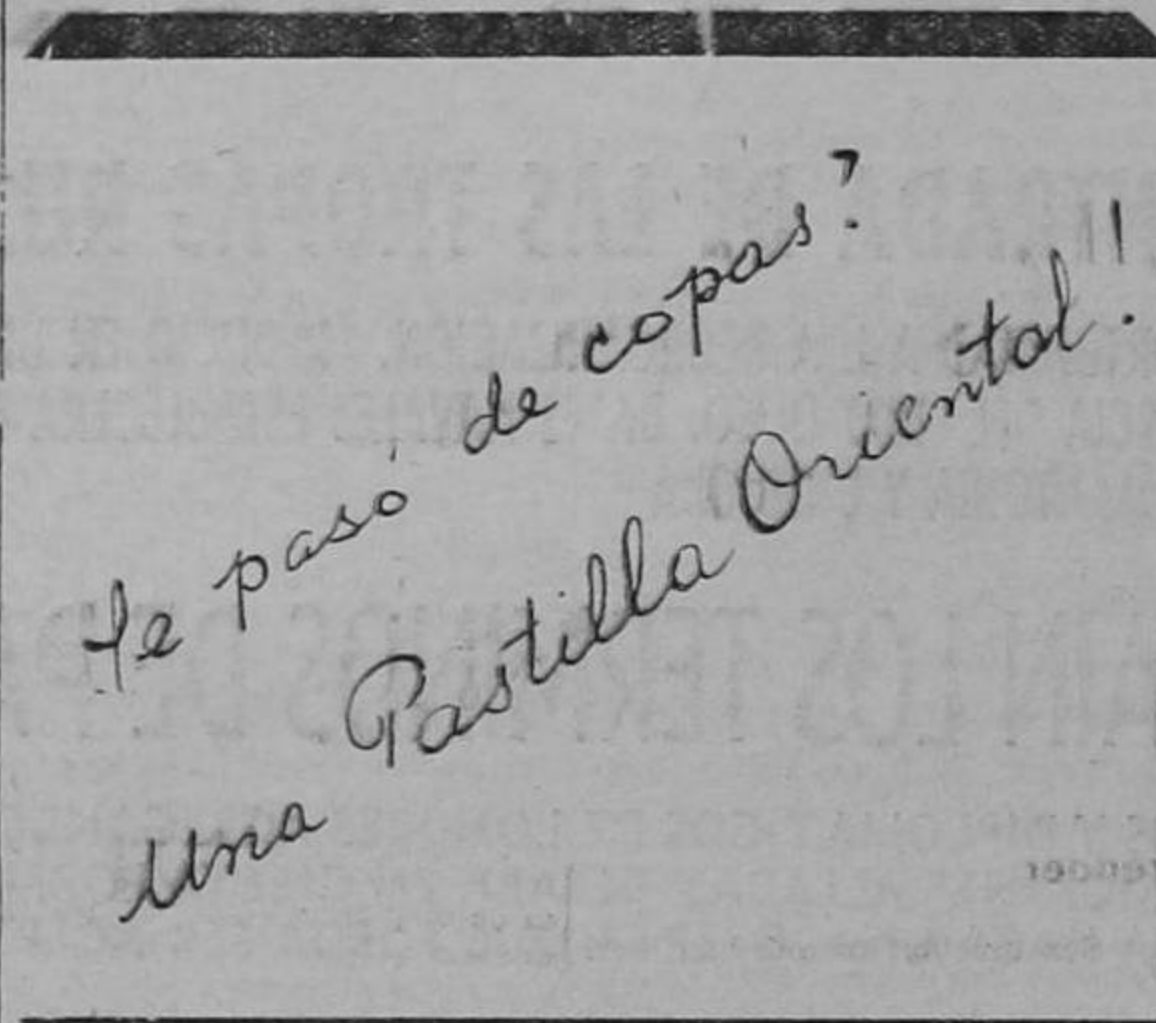 Se pasó de copas?
Una Pastilla Oriental!!